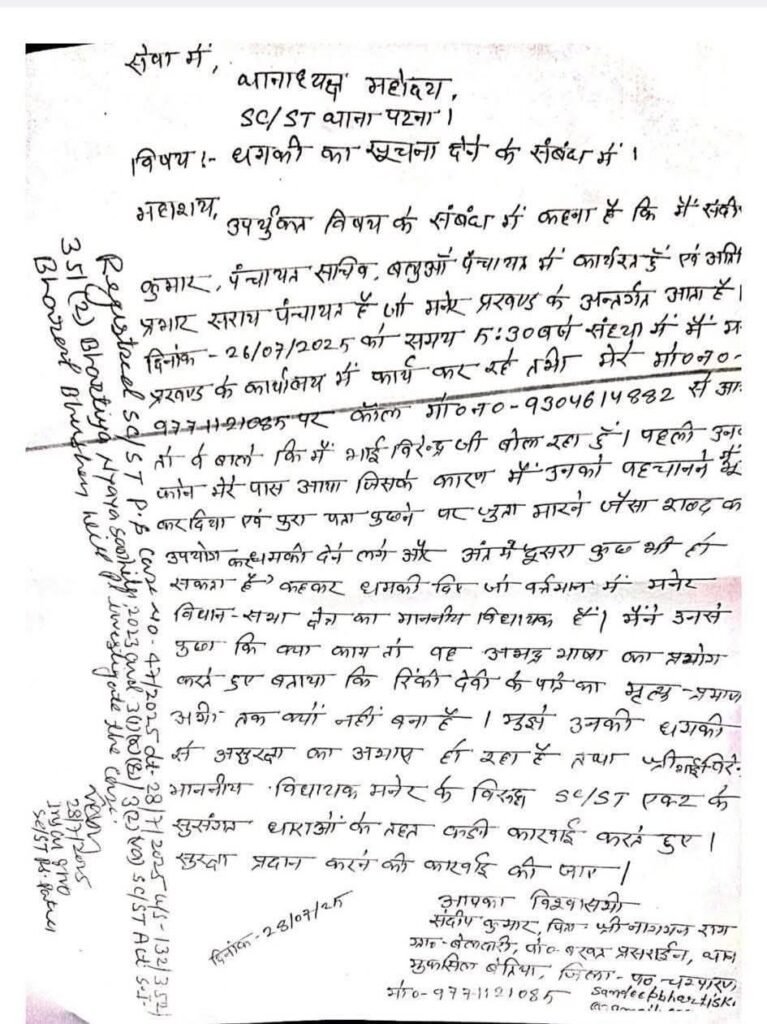 सेवा में,
थानाध्यक्ष महोदय,
SC/ST थाना पटना।
विषय :- धमकी का सूचना देने के संबंध में।
महाशय,
उपर्युक्त विषय के संबंध में कहना है कि मैं संदी
कुमार, पंचायत सचिव, बलुआँ पंचायत में कार्यरत हूँ एवं अति
प्रभार सराय पंचायत है जो मनेर प्रखण्ड के अन्तर्गत आता है।
दिनांक - 26/07/2025 को समय 5:30 बजे संध्या में मैं म
प्रखण्ड के कार्यालय में कार्य कर रहे तभी मेरे मो0 न0-
9771121085 पर कॉल मो0 न0-9304614882 से आ
तो वे बोले कि मैं भाई विरेन्द्र जी बोल रहा हूँ। पहली उन
फोन मेरे पास आया जिसके कारण मैं उनको पहचानने में
कर दिया एवं पुरा पता पुछने पर जुता मारने जैसा शब्द क
उपयोग कर धमकी देने लगे और अंत में दूसरा कुछ भी हो
सकता है कहकर धमकी दिए जो वर्तमान में मनेर
विधान-सभा क्षेत्र का माननीय विधायक हैं। मैंने उनसे
पुछा कि क्या काम तो वह अभद्र भाषा का प्रयोग
करते हुए बताया कि रिंकी देवी के पति का मृत्यु-प्रमाण
अभी तक क्यों नहीं बना है। मुझे उनकी धमकी
से असुरक्षा का आभाष हो रहा है तथा श्री भाई विरे-
माननीय विधायक मनेर के विरूद्ध SC/ST एक्ट के
सुसंगत धाराओं के तहत कड़ी कारवाई करते हुए।
सुरक्षा प्रदान करने की कारवाई की जाए।
आपका विश्वासभी
दिनांक-28/07/25
संदीप कुमार, पिता श्री नागमन राम
ग्राम- पो0- बरवत प्रसराईन, थाना
मुफसिल बेतिया, जिला- प0 चम्पारण
मो0-9771121085
Registered SC/ST P.S Case no-47/2025 dt-28/7/2025 u/s-132/352/
351(2) Bhartiya Nyaya Sanhita 2023 and 3(1)(r)(s)/3(2)(va) SC/ST Act S.I
Bharat Bhushan will investigate the case.
28/7/2025
SC/ST P.S. Patna